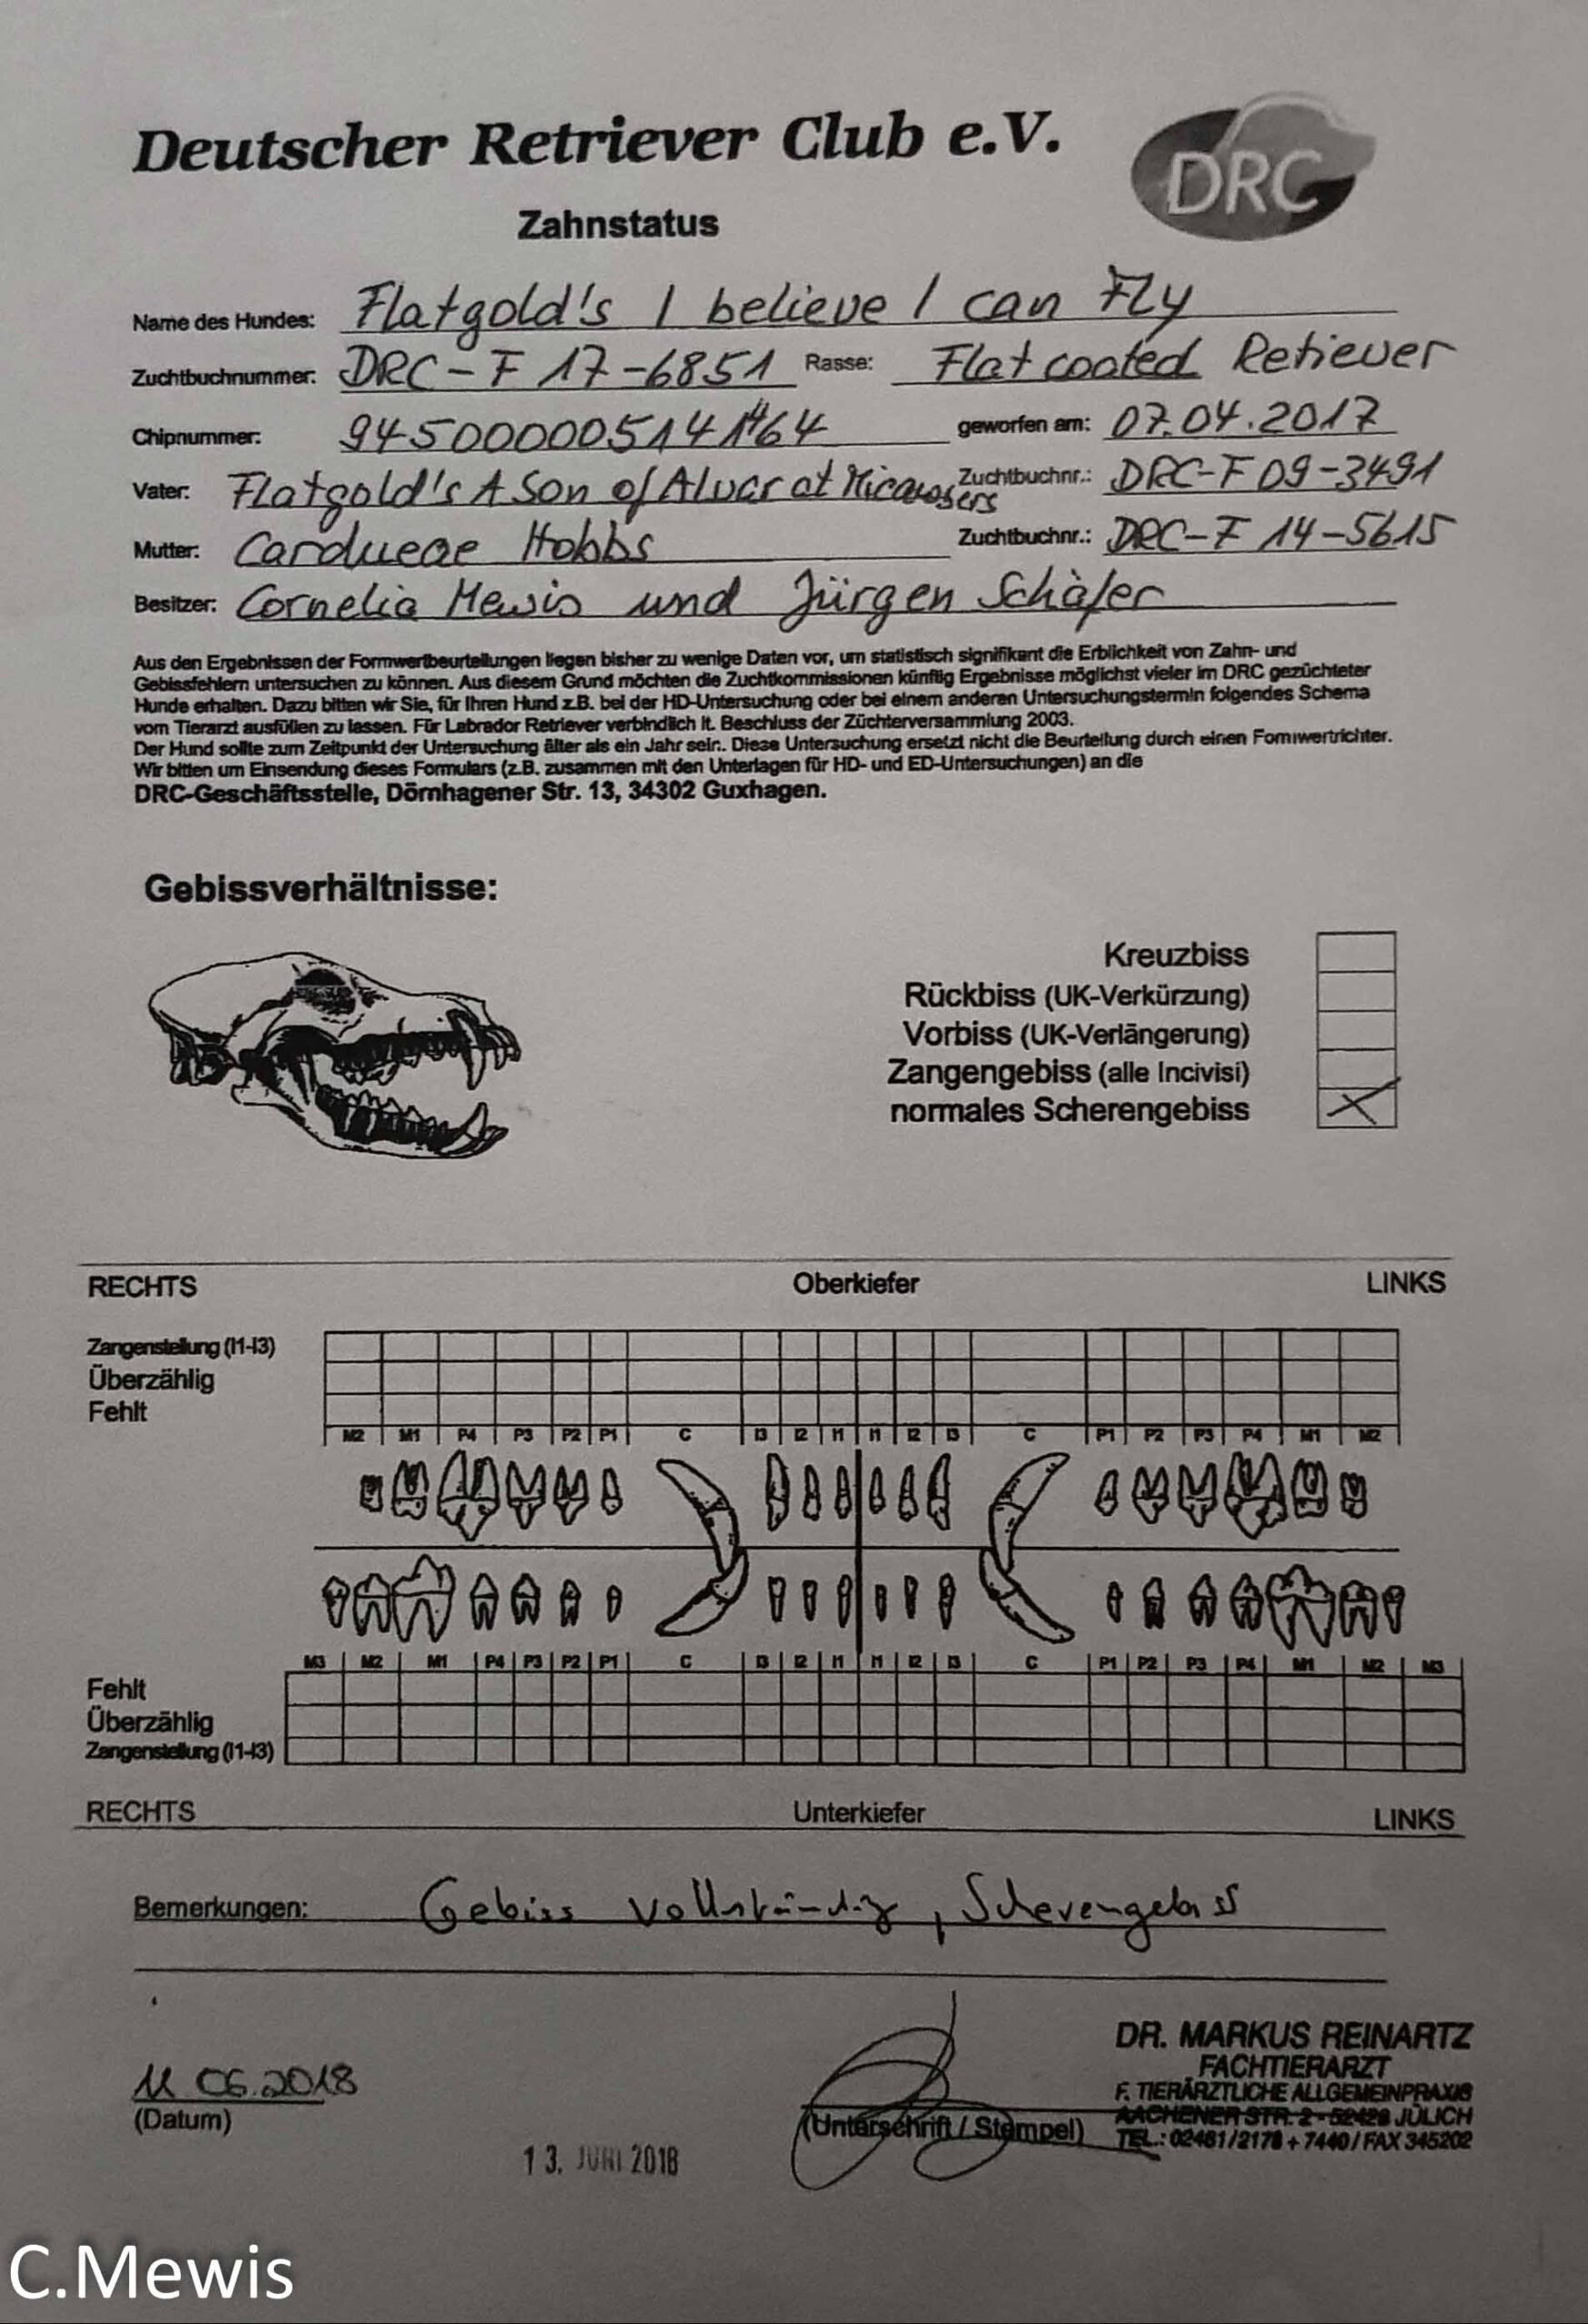 Deutscher Retriever Club e.V.
DRC
Zahnstatus
Name des Hundes: Flatgold's I believe I can Fly
Zuchtbuchnummer: DRC-F 17-6851 Rasse: Flatcoated Retiever
Chipnummer: geworfen am: 07.04.2017
Vater: Flatgold's A Son of Alvar at Zuchtbuchnr.: DRC-F 09-3491
Mutter: Cardueae Hobbs Zuchtbuchnr.: DRC-F 14-5615
Besitzer: Cornelia Mewis und Jürgen Schäfer
Aus den Ergebnissen der Formwertbeurteilungen liegen bisher zu wenige Daten vor, um statistisch signifikant die Erblichkeit von Zahn- und
Gebissfehlern untersuchen zu können. Aus diesem Grund möchten die Zuchtkommissionen künftig Ergebnisse möglichst vieler im DRC gezüchteter
Hunde erhalten. Dazu bitten wir Sie, für Ihren Hund z.B. bei der HD-Untersuchung oder bei einem anderen Untersuchungstermin folgendes Schema
vom Tierarzt ausfüllen zu lassen. Für Labrador Retriever verbindlich lt. Beschluss der Züchterversammlung 2003.
Der Hund sollte zum Zeitpunkt der Untersuchung älter als ein Jahr sein. Diese Untersuchung ersetzt nicht die Beurteilung durch einen Formwertrichter.
Wir bitten um Einsendung dieses Formulars (z.B. zusammen mit den Unterlagen für HD- und ED-Untersuchungen) an die
DRC-Geschäftsstelle, Dörnhagener Str. 13, 34302 Guxhagen.
Gebissverhältnisse:
Kreuzbiss
Rückbiss (UK-Verkürzung)
Vorbiss (UK-Verlängerung)
Zangengebiss (alle Incivisi)
normales Scherengebiss X
RECHTS Oberkiefer LINKS
Zangenstellung (I1-I3)
Überzählig
Fehlt
M2 M1 P4 P3 P2 P1 C I3 I2 I1 I1 I2 I3 C P1 P2 P3 P4 M1 M2
M3 M2 M1 P4 P3 P2 P1 C I3 I2 I1 I1 I2 I3 C P1 P2 P3 P4 M1 M2 M3
Fehlt
Überzählig
Zangenstellung (I1-I3)
RECHTS Unterkiefer LINKS
Bemerkungen: Gebiss vollständig, Scherengebiss
11 06.2018
(Datum)
(Unterschrift / Stempel)
DR. MARKUS REINARTZ
FACHTIERARZT
F. TIERÄRZTLICHE ALLGEMEINPRAXIS
AACHENER STR. 2 - 52428 JÜLICH
TEL.: 02461/2178 + 7440 / FAX 345202
13. JUNI 2018
C.Mewis